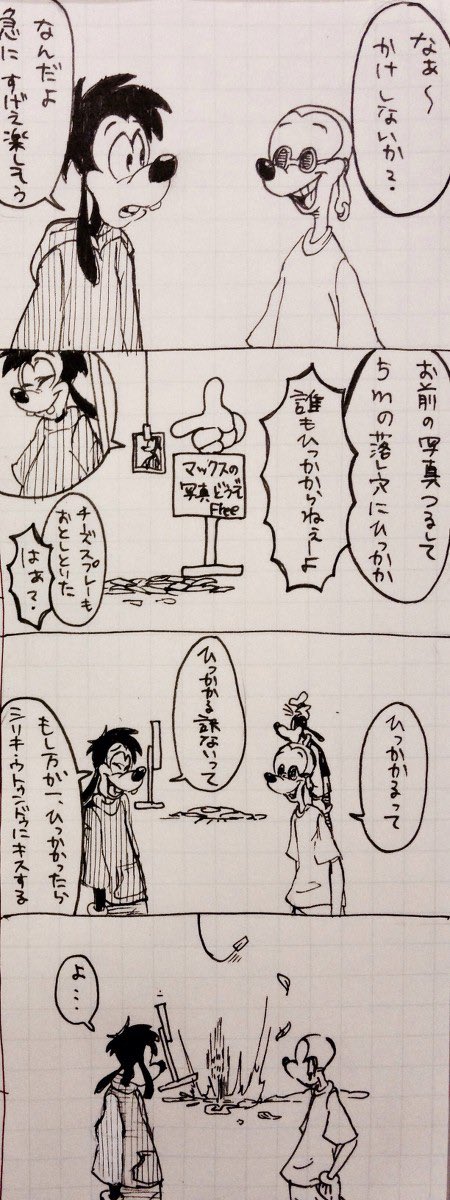 なぁ〜
かけしないか?
なんだよ
急にすげぇ楽しそう
お前の写真つるして
5mの落し穴にひっかか
誰もひっかからねぇーよ
マックスの
写真どうぞ
Free
チーズスプレーも
おとしといた
はぁ?
ひっかかるって
ひっかかる訳ないって
もし万が一、ひっかかったら
シリキ・ウトゥンドゥにキスする
よ…